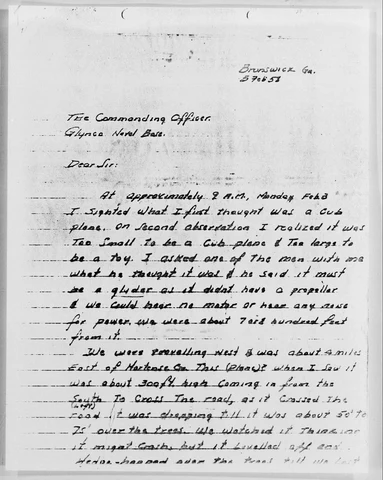 Brunswick Ga.
5 Feb 58
The Commanding Officer.
Glynco Naval Base.
Dear Sir:
At approximately 9 A.M., Monday Feb 3
I sighted what I first thought was a Cub
plane. On second observation I realized it was
Too Small to be a Cub plane & Too large to
be a toy. I asked one of the men with me
what he thought it was & he said it must
be a glyder as it didnt have a propeller
& we could hear no motor or hear any noise
for power. We were about 7 or 8 hundred feet
from it.
We were travelling West & was about 4 miles
East of Ga. This (Plane)? when I saw it
was about 300ft high coming in from the
South To Cross The road, as it crossed the
(left)
road it was dropping till it was about 50' to
75' over the trees. We watched it Thinking
it might Crash, but it levelled off and
over the trees till we lost